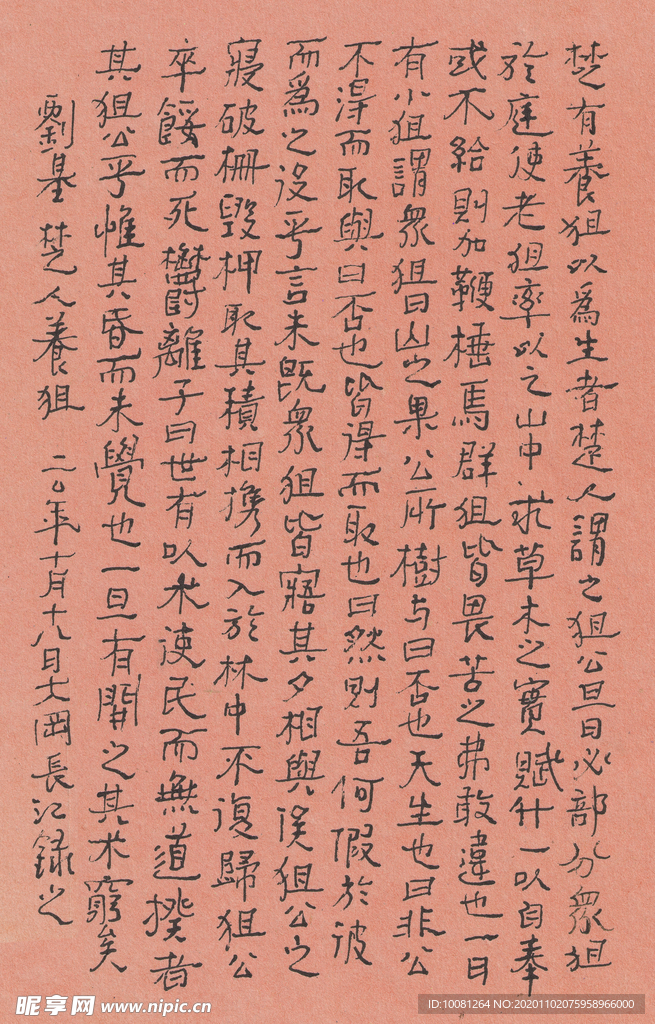 楚有養狙以爲生者楚人謂之狙公旦日必部分衆狙
於庭使老狙率以之山中求草木之實賦什一以自奉
或不給則加鞭棰焉群狙皆畏苦之弗敢違也一日
有小狙謂衆狙曰山之果公所樹與曰否也天生也曰非公
不得而取與曰否也皆得而取也曰然則吾何假於彼
而爲之役乎言未既衆狙皆寤其夕相與俟狙公之
寢破柵毀柙取其積相携而入於林中不復歸狙公
卒餒而死鬱離子曰世有以术使民而無道揆者
其狙公乎惟其昏而未覺也一旦有開之其术窮矣
劉基 楚人養狙 二〇年十月十八日大岡長江録之
昵享网 www.nipic.cn
ID:10081264 NO:20201102075958966000